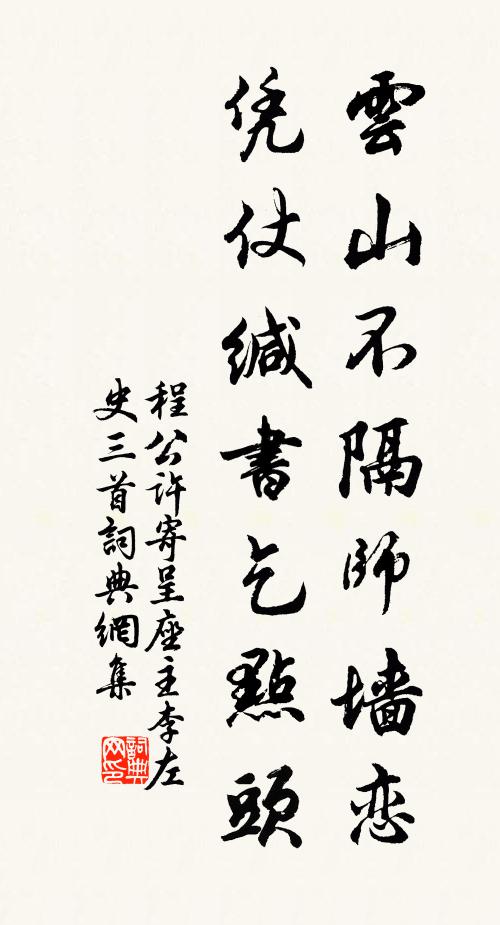 雲山不隔師墙恋
凭仗緘書乞點頭
程公許寄呈座主李左
史三首詞典網集
詞典
网印